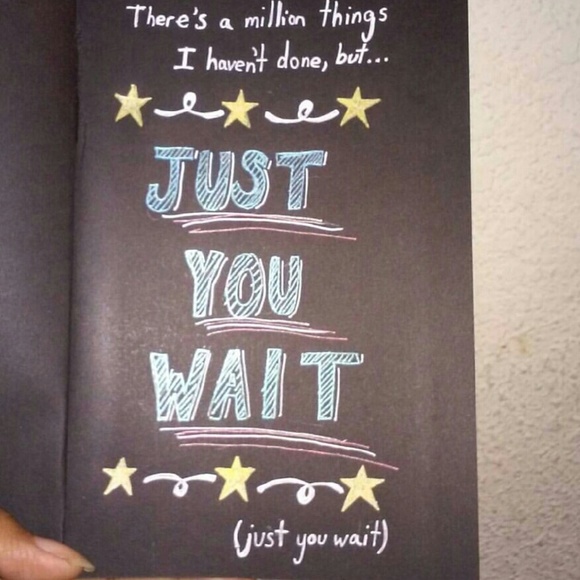 There's a million things
I haven't done, but...
JUST
YOU
WAIT
(just you wait)